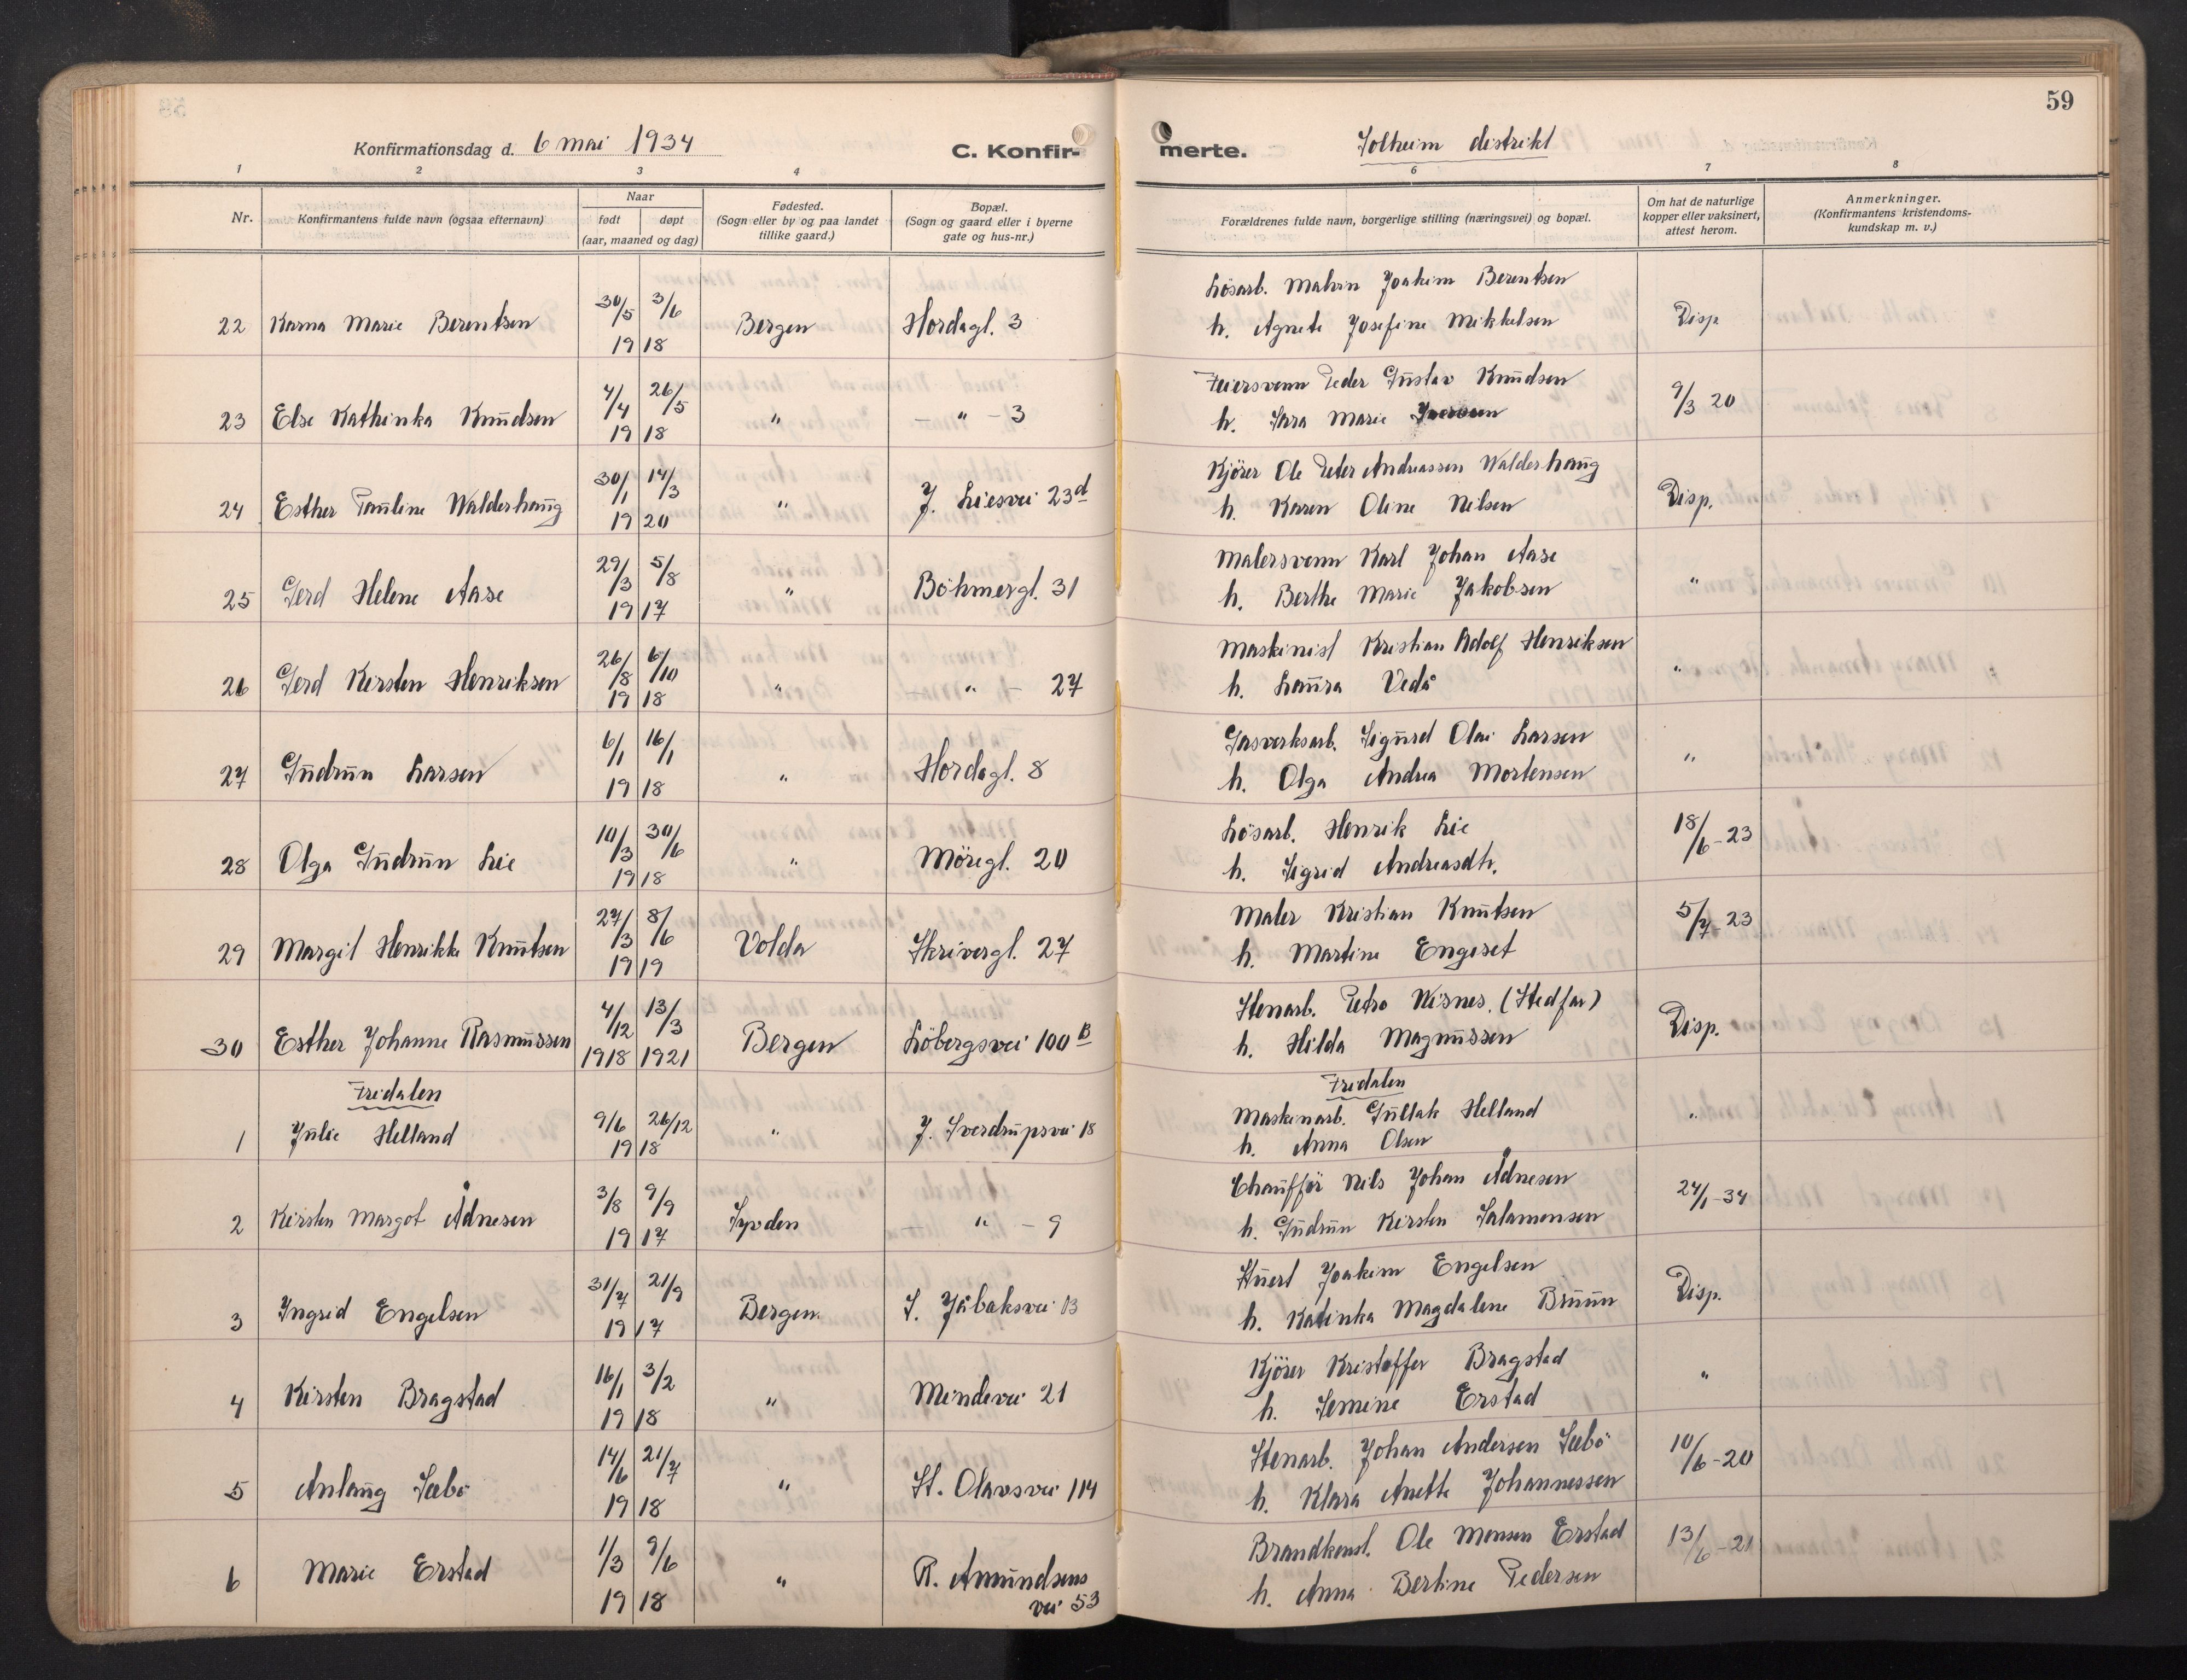 59
Konfirmationsdag d. 6 mai 1934
C. Konfir-
merte.
Solheim distrikt
1 2 3 4 6 7 8
Nr.
Konfirmantens fulde navn (ogsaa efternavn)
Naar
født døpt
(aar, maaned og dag)
Fødested.
(Sogn eller by og paa landet
tillike gaard.)
Bopæl.
(Sogn og gaard eller i byerne
gate og hus-nr.)
Forældrenes fulde navn, borgerlige stilling (næringsvei) og bopæl.
Om hat de naturlige
kopper eller vaksinert,
attest herom.
Anmerkninger.
(Konfirmantens kristendoms-
kundskap m. v.)
22 Karna Marie Berentsen 30/5 3/6 1918 Bergen Hordagt. 3
Løsarb. Joakim Berentsen
h. Agnete Josefine Mikkelsen
Disp
23 Else Kathinka Knudsen 4/4 26/5 1918 " — " — 3
Feiersvenn Peder Gustav Knudsen
h. Sara Marie
9/3 20
24 Esther Pauline Walderhaug 30/1 14/3 1920 " J. Liesvei 23d
Kjører Ole Peter Andreassen Walderhaug
h. Karen Oline Nilsen
Disp.
25 Gerd Helene Aase 29/3 5/8 1917 " Böhmergt. 31
Malersvenn Karl Johan Aase
h. Berthe Marie Jakobsen
"
26 Gerd Kirsten Henriksen 26/8 6/10 1918 " — " — 27
Maskinist Kristian Adolf Henriksen
h. Laura Vedå
"
27 Gudrun Larsen 6/1 16/1 1918 " Hordagt. 8
Gasverksarb. Sigurd Olai Larsen
h. Olga Andrea Mortensen
"
28 Olga Gudrun Lie 10/3 30/6 1918 " Möregt. 20
Løsarb. Henrik Lie
h. Sigrid Andreasdtr.
18/6-23
29 Margit Henrikke Knutsen 27/3 8/6 1919 Volda Skrivergt. 27
Maler Kristian Knutsen
h. Martine Engeset
5/7-23
30 Esther Johanne Rasmussen 4/12 13/3 1918 1921 Bergen Löbergsvei 100 B
Stenarb. Petro Nisnes. (Stedfar)
h. Hilda Magnussen
Disp.
Fridalen
Fridalen
1 Julie Helland 9/6 26/12 1918 " J. Sverdrupsvei 18
Maskinarb. Gullak Helland
h. Anna Olsen
"
2 Kirsten Margot Ådnesen 3/8 9/9 1917 Syvden — " — 9
Chauffør Nils Johan Ådnesen
h. Gudrun Kirsten Salamonsen
24/1-34
3 Ingrid Engelsen 31/7 21/9 1917 Bergen. S. Jåbaksvei 13
Stuert Joakim Engelsen
h. Katinka Magdalene Bruun
Disp.
4 Kirsten Bragstad 16/1 3/2 1918 " Mindevei 21
Kjører Kristoffer Bragstad
h. Semine Erstad
"
5 Anlaug Sæbö 14/6 21/7 1918 " St. Olavsvei 114
Stenarb. Johan Andersen Sæbö
h. Klara Anette Johannessen
10/6-20
6 Marie Erstad 1/3 9/6 1918 " R. Amundsens
vei 53
Brandkonst. Ole Monsen Erstad
h. Anna Bertine Pedersen
13/6-21